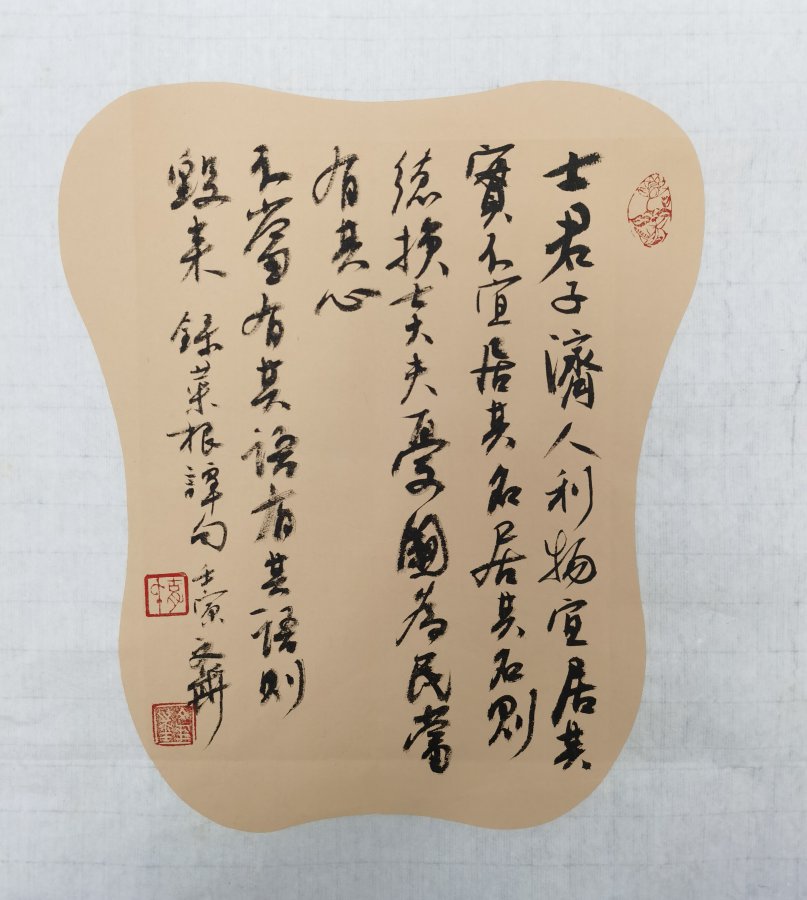 士君子濟人利物宜居其
實不宜居其名居其名則
德損士大夫憂國為民當
有其心
不當有其語有其語則
毀来 錄菜根譚句
壬寅